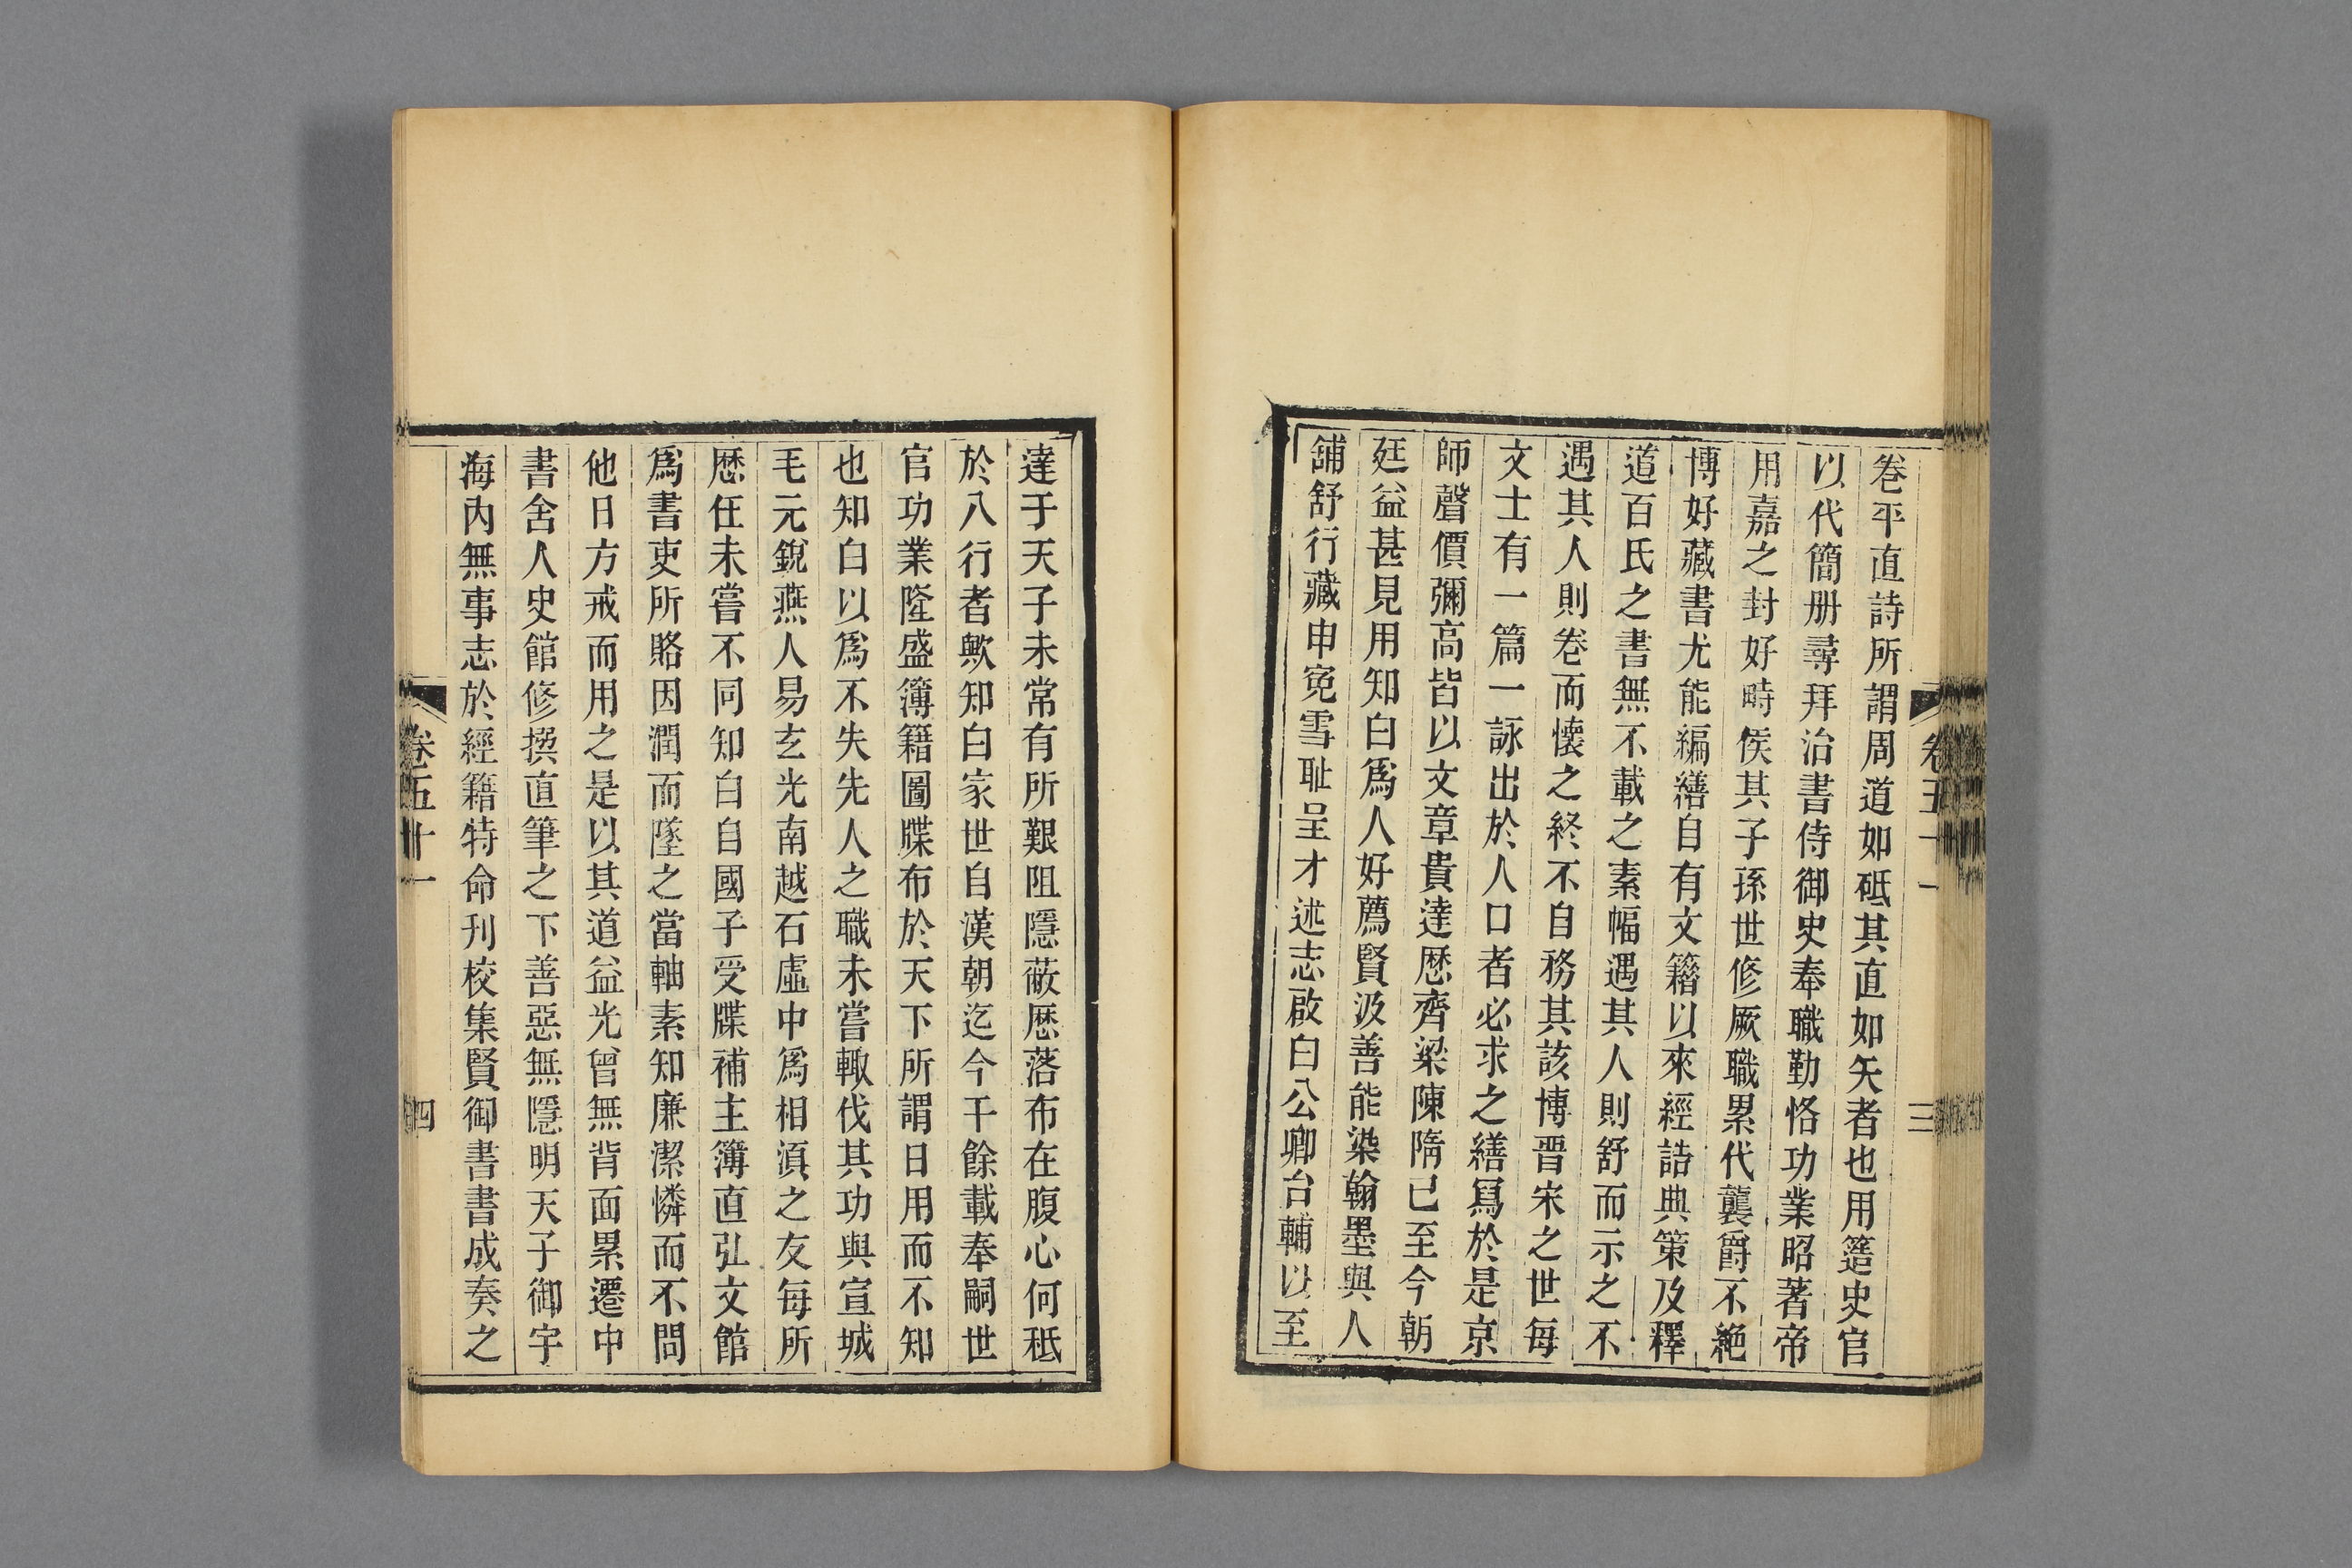 卷平直詩所謂周道如砥其直如矢者也用簉史官
以代簡册尋拜治書侍御史奉職勤恪功業昭著帝
用嘉之封好畤侯其子孫世修厥職累代襲爵不絶
博好藏書尤能編繕自有文籍以來經誥典策及釋
道百氏之書無不載之素幅遇其人則舒而示之不
遇其人則卷而懷之終不自務其該博晉宋之世每
文士有一篇一詠出於人口者必求之繕冩於是京
師聲價彌高皆以文章貴達歷齊梁陳隋已至今朝
廷益甚見用知白爲人好薦賢汲善能染翰墨與人
舖舒行藏申寃雪耻呈才述志啟白公卿台輔以至
卷五十一
三
達于天子未常有所艱阻隱蔽歷落布在腹心何秪
於八行者歟知白家世自漢朝迄今千餘載奉嗣世
官功業隆盛簿籍圖牒布於天下所謂日用而不知
也知白以爲不失先人之職未嘗輙伐其功與宣城
毛元銳燕人易玄光南越石虛中爲相湏之友每所
歷任未嘗不同知白自國子受牒補主簿直弘文館
爲書吏所賂因潤而墜之當軸素知廉潔憐而不問
他日方戒而用之是以其道益光曾無背面累遷中
書舍人史館修撰直筆之下善惡無隱明天子御宇
海內無事志於經籍特命刊校集賢御書書成奏之
卷五十一
四